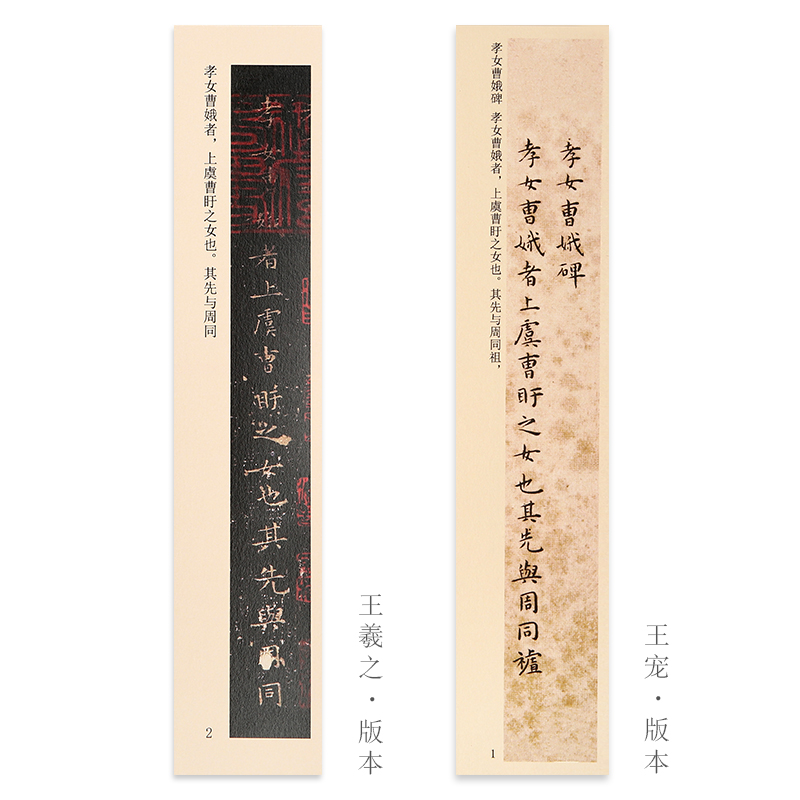 孝女曹娥者，上虞曹盱之女也。其先与周同
孝女曹娥者上虞曹盱之女也其先與周同
2
王羲之·版本
孝女曹娥碑 孝女曹娥者，上虞曹盱之女也。其先与周同祖，
孝女曹娥碑
孝女曹娥者上虞曹盱之女也其先與周同
1
王宠·版本